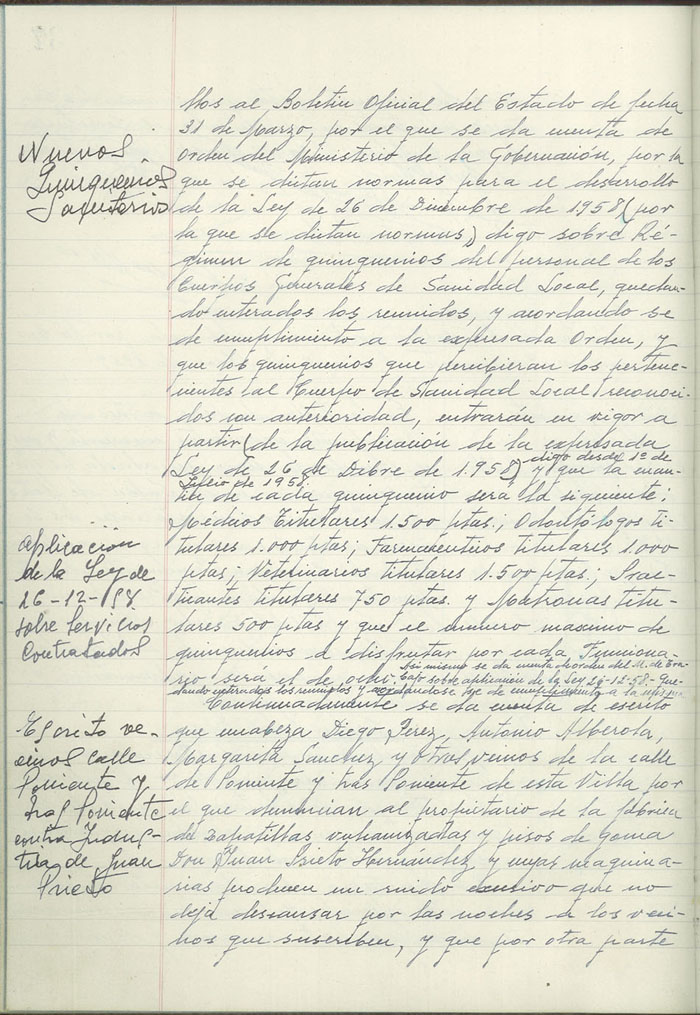 Nuevos
Quinquenios
Sanitarios
aplicación
de la Ley de
26-12-58
sobre servicios
Contratados
Escrito ve-
cinos calle
Poniente y
tras Poniente
contra Indus-
tria de Juan
Prieto
llos al Boletin Oficial del Estado de fecha
31 de Marzo, por el que se da cuenta de
Orden del Ministerio de la Gobernación, por la
que se dictan normas para el desarrollo
de la Ley de 26 de Diciembre de 1958 (por
la que se dictan normas) digo sobre Ré-
gimen de quinquenios del personal de los
Cuerpos Generales de Sanidad Local, quedan-
do enterados los reunidos, y acordando se
de cumplimiento a la expresada Orden, y
que los quinquenios que percibieran los pertene-
cientes al Cuerpo de Sanidad Local reconoci-
dos con anterioridad, entrarán en vigor a
partir (de la publicación de la expresada
Ley de 26 de Dibre de 1.958) digo desde 1º de
Julio de 1958 y que la cuan-
tia de cada quinquenio sera la siguiente;
Médicos Titulares 1.500 ptas.; Odontólogos ti-
tulares 1.000 ptas; Farmaceuticos titulares 1.000
ptas; Veterinarios titulares 1.500 ptas.; Prac-
ticantes titulares 750 ptas. y Matronas titu-
lares 500 ptas y que el numero maximo de
quinquenios a disfrutar por cada Funciona-
rio será el de ocho. Asi mismo se da cuenta de orden del M. de
sobre aplicación de la Ley 26-12-58.- Que-
dando enterados los reunidos y acordandose se de cumplimiento a la misma
Continuadamente se da cuenta de escrito
que encabeza Diego Perez, Antonio Alberola,
Margarita Sanchez y otros vecinos de la calle
de Poniente y tras Poniente de esta Villa por
el que denuncian al propietario de la fabrica
de zapatillas vulcanizadas y pisos de goma
Don Juan Prieto Hernández y cuyas maquina-
rias producen un ruido excesivo que no
deja descansar por las noches a los veci-
nos que suscriben, y que por otra parte